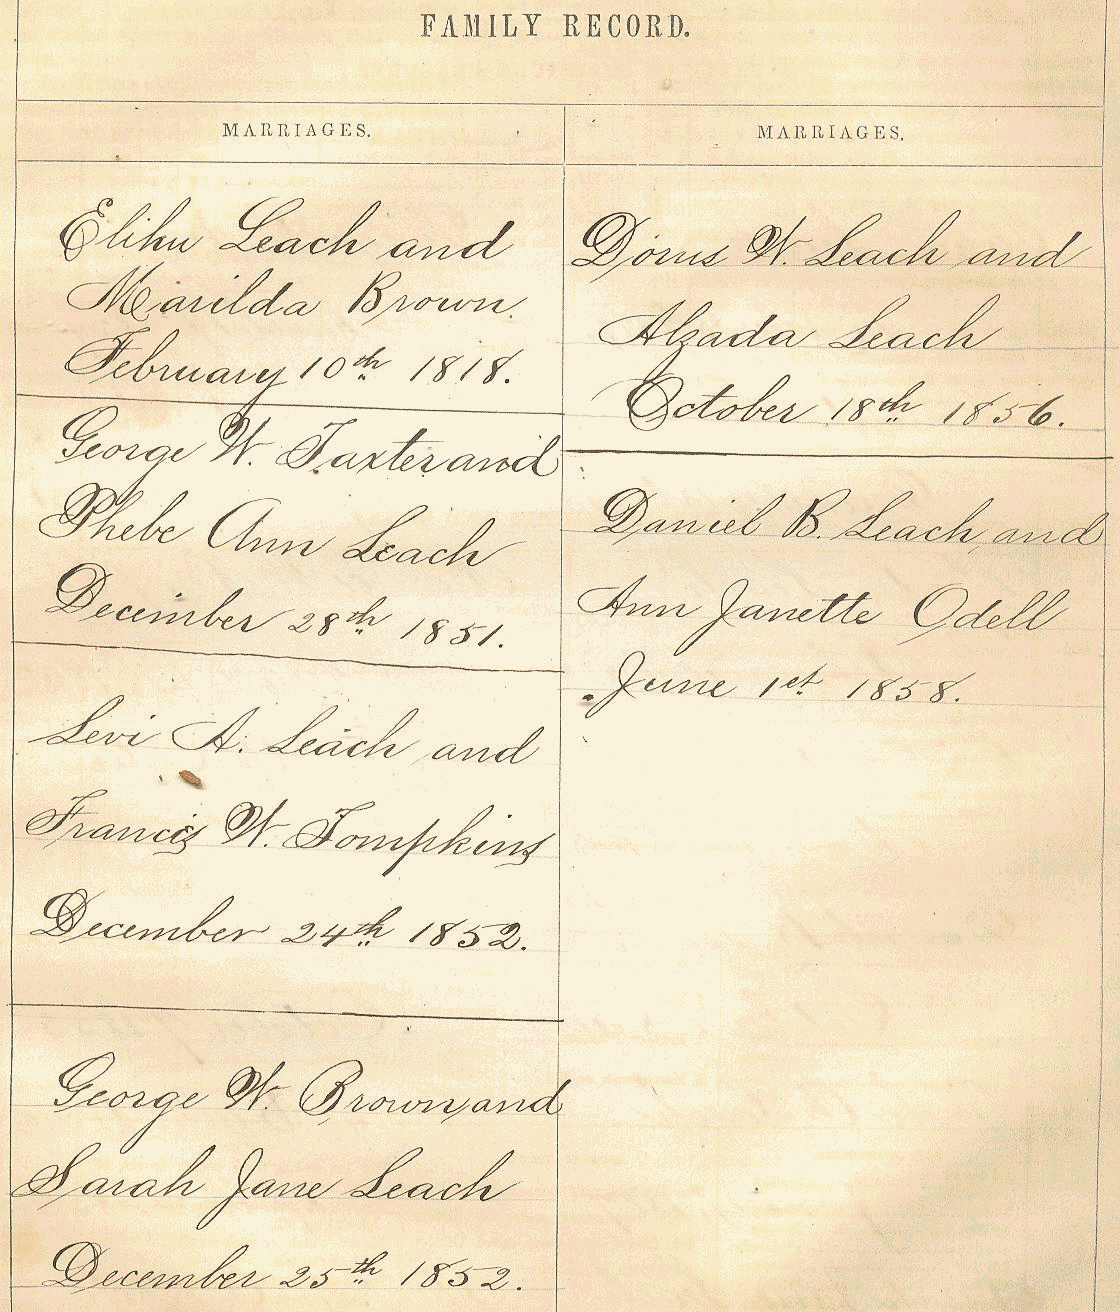 FAMILY RECORD.
MARRIAGES.
Elihu Leach and
Marilda Brown.
February 10th 1818.
George W. Taxter and
Phebe Ann Leach
December 28th 1851.
Levi A. Leach and
Francis W. Tompkins
December 24th 1852.
George W. Brown, and
Sarah Jane Leach
December 25th 1852.
MARRIAGES.
W. Leach and
Alzada Leach
October 18th 1856.
Daniel B. Leach, and
Ann Janette Odell
June 1st 1858.